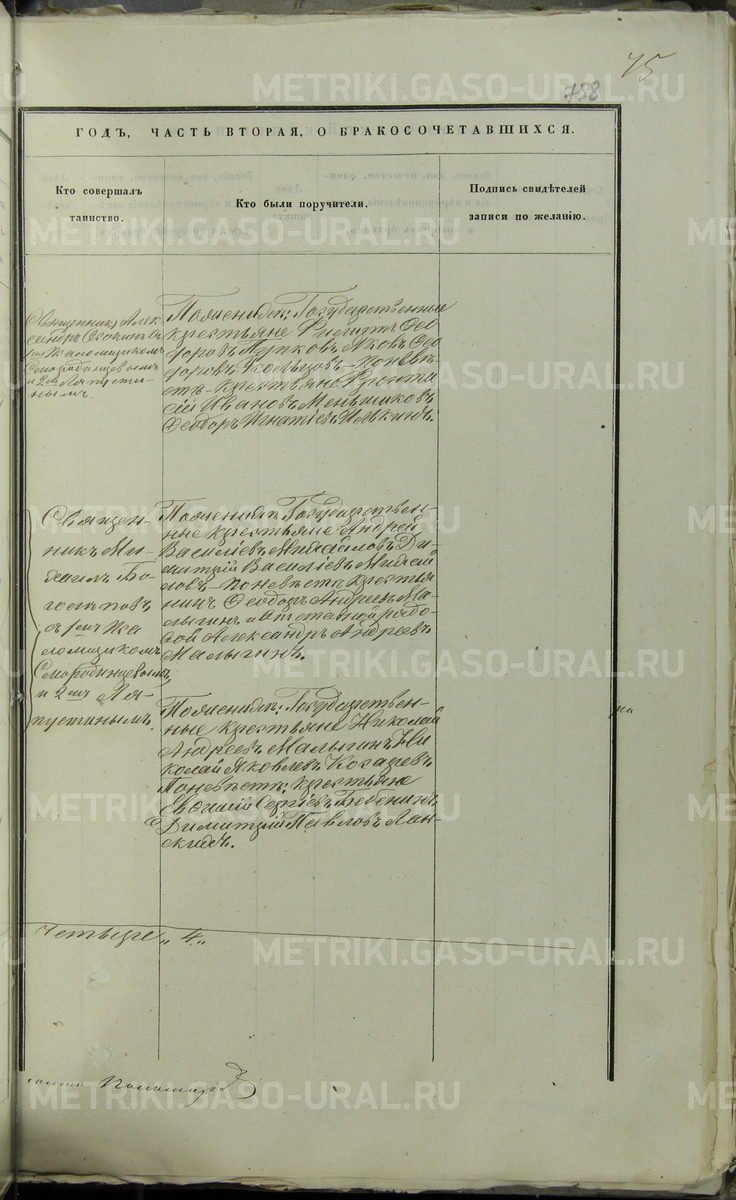 75
758
ГОДЪ, ЧАСТЬ ВТОРАЯ, О БРАКОСОЧЕТАВШИХСЯ.
Кто совершалъ
таинство.
Кто были поручители.
Подпись свидѣтелей
записи по желанію.
Священникъ Алек-
сандръ
Псаломщикомъ
Смородинцевымъ
и 2мъ Ляпусти-
нымъ.
По женихѣ: Государственные
крестьяне Филиппъ Ѳео-
доровъ Пупковъ, Яковъ Ѳео-
доровъ Кольцовъ. По невѣ-
стѣ: крестьяне
Ивановъ Меньшиковъ
Ѳеодоръ Игнатіевъ Илькинъ.
Священ-
никъ Ми-
хаилъ Бо-
гословъ
съ 1мъ Пса-
ломщикомъ
Смородинцевымъ
и 2мъ Ля-
пустинымъ.
По женихѣ: Государствен-
ные крестьяне Андрей
Василіевъ Михайловъ, Ди-
митрій Василіевъ Михай-
ловъ. По невѣстѣ: крестья-
нинъ Ѳеодоръ Андреевъ Ма-
лыгинъ и отставной рядо-
вой Александръ Андреевъ
Малыгинъ.
По женихѣ: Государствен-
ные крестьяне Николай
Андреевъ Малыгинъ, Ни-
колай Яковлевъ Косаревъ
По невѣстѣ: крестьяне
Сергіевъ Бабенинъ
Димитрій Павловъ Лан-
скихъ.
Четыре „4„
METRIKI.GASO-URAL.RU